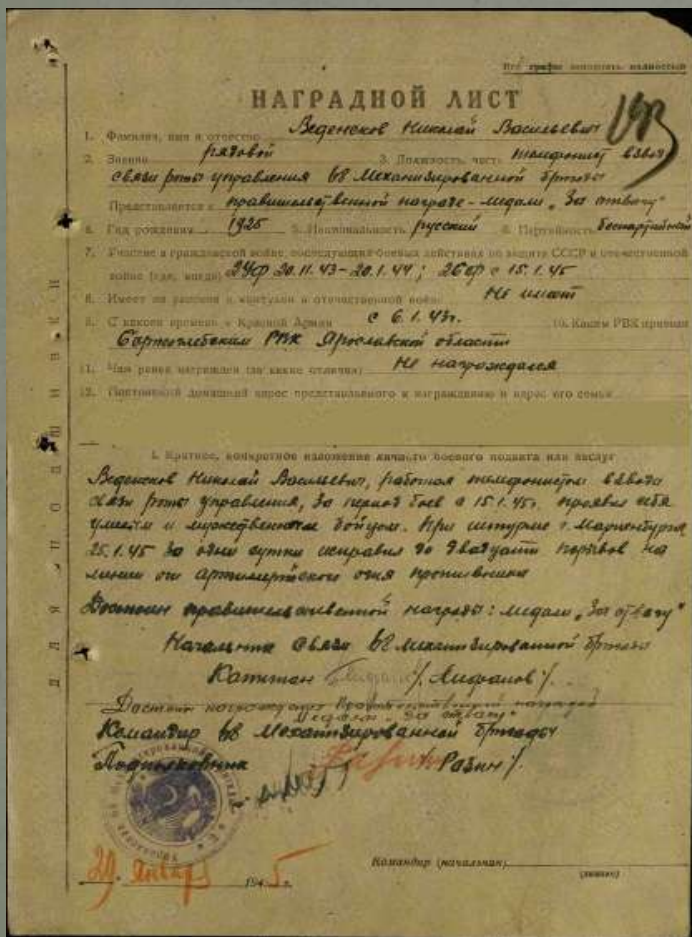 Все графы заполнять полностью
НАГРАДНОЙ ЛИСТ
1. Фамилия, имя и отчество Веденсков Николай Васильевич
2. Звание рядовой 3. Должность, часть телефонист взвода
связи роты управления 68 Механизированной бригады
Представляется к правительственной награде - медали „За отвагу"
4. Год рождения 1925 5. Национальность русский 6. Партийность беспартийный
7. Участие в гражданской войне, последующих боевых действиях по защите СССР и отечественной
войне (где, когда) 2Уф 20.11.43-20.1.44; 2Бф с 15.1.45
8. Имеет ли ранения и контузии в отечественной войне Не имеет
9. С какого времени в Красной Армии с 6.1.43г. 10. Каким РВК призван
РВК Ярославской области
11. Чем ранее награжден (за какие отличия) Не награждался
12. Постоянный домашний адрес представляемого к награждению и адрес его семьи
I. Краткое, конкретное изложение личного боевого подвига или заслуг
Веденсков Николай Васильевич, работая телефонистом взвода
связи роты управления, за период боев с 15.1.45г. проявил себя
умелым и мужественным бойцом. При штурме г. Мариенбурга
25.1.45 за одни сутки исправил до двадцати порывов на
линии от артиллерийского огня противника
Достоин правительственной награды: медали „За отвагу"
Начальник связи 68 механизированной бригады
Капитан /. Лифанов /.
Достоин награждения Правительственной наградой
Медалью „За отвагу"
Командир 68 Механизированной бригады
Подполковник /. Разин /.
29. Января 1945г.
Командир (начальник)
ДЛЯ ПОДШИВКИ